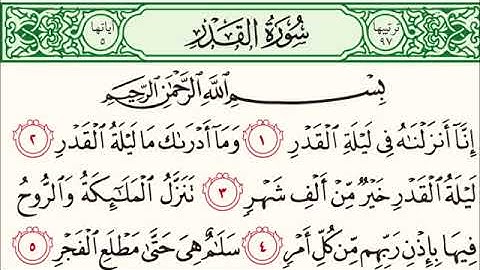 ترتيبها ٩٧ سُورَةُ القَدْرِ آياتها ٥
بِسْمِ اللَّهِ الرَّحْمَٰنِ الرَّحِيمِ
إِنَّآ أَنزَلْنَٰهُ فِى لَيْلَةِ ٱلْقَدْرِ ١ وَمَآ أَدْرَىٰكَ مَا لَيْلَةُ ٱلْقَدْرِ ٢
لَيْلَةُ ٱلْقَدْرِ خَيْرٌ مِّنْ أَلْفِ شَهْرٍ ٣ تَنَزَّلُ ٱلْمَلَٰٓئِكَةُ وَٱلرُّوحُ
فِيهَا بِإِذْنِ رَبِّهِم مِّن كُلِّ أَمْرٍ ٤ سَلَٰمٌ هِىَ حَتَّىٰ مَطْلَعِ ٱلْفَجْرِ ٥